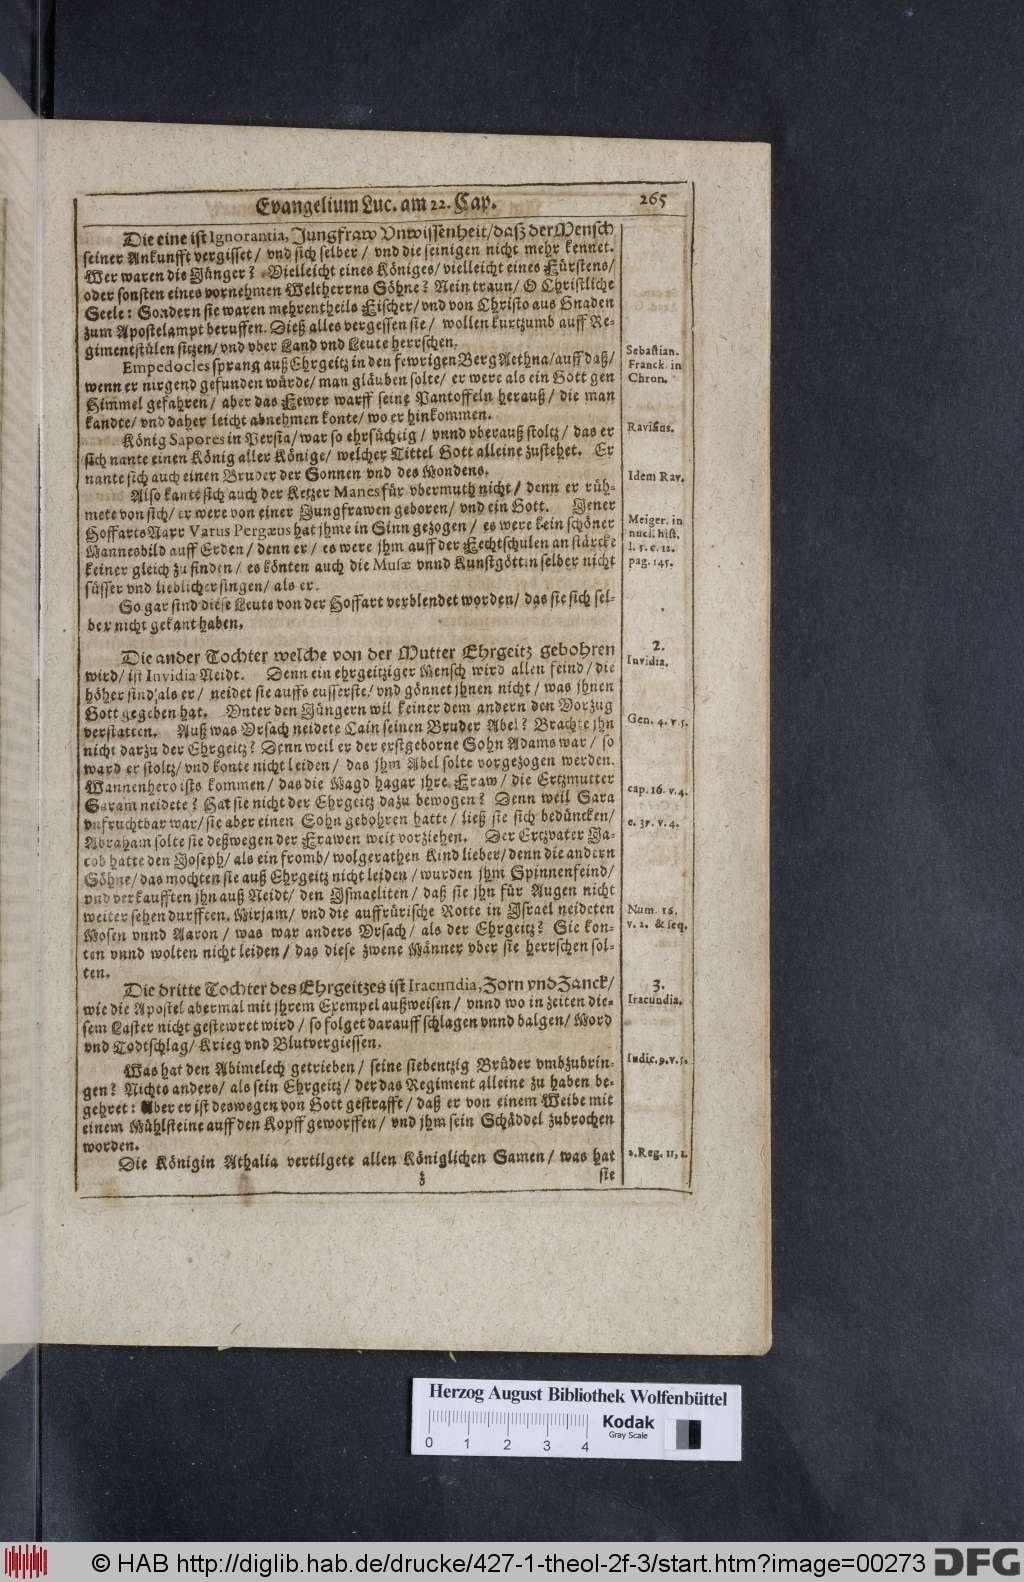 Evangelium Luc. am 22. Cap. 265
Die eine ist Ignorantia, Jungfraw Vnwissenheit/ daß der Mensch
seiner Ankunfft vergisset/ vnd sich selber/ vnd die seinigen nicht mehr kennet.
Wer waren die Jünger? Vielleicht eines Königes/ vielleicht eines Fürstens/
oder sonsten eines vornehmen Weltherrns Söhne? Nein traun/ O Christliche
Seele: Sondern sie waren mehrentheils Fischer/ vnd von Christo aus Gnaden
zum Apostelampt beruffen. Dieß alles vergessen sie/ wollen kurtzumb auff Re-
gimentstülen sitzen/ vnd vber Land vnd Leute herrschen.
Empedocles sprang auß Ehrgeitz in den fewrigen Berg Aethna/ auff daß/
wenn er nirgend gefunden würde/ man gläuben solte/ er were als ein Gott gen
Himmel gefahren/ aber das Fewer warff seine Pantoffeln herauß/ die man
kandte/ vnd daher leicht abnehmen konte/ wo er hinkommen.
König Sapores in Persia/ war so ehrsüchtig/ vnnd vberauß stoltz/ das er
sich nante einen König aller Könige/ welcher Tittel Gott alleine zustehet. Er
nante sich auch einen Bruder der Sonnen vnd des Mondens.
Also kante sich auch der Ketzer Manes für vbermuth nicht/ denn er rüh-
mete von sich/ er were von einer Jungfrawen geboren/ vnd ein Gott. Jener
Hoffarts Narr Varus Pergæus hat jhme in Sinn gezogen/ es were kein schöner
Mannesbild auff Erden/ denn er/ es were jhm auff der Fechtschulen an stärcke
keiner gleich zu finden/ es könten auch die Musæ vnnd Kunstgöttin selber nicht
süsser vnd lieblicher singen/ als er.
So gar sind diese Leute von der Hoffart verblendet worden/ das sie sich sel-
ber nicht gekant haben.
Die ander Tochter welche von der Mutter Ehrgeitz gebohren
wird/ ist Invidia Neidt. Denn ein ehrgeitziger Mensch wird allen feind/ die
höher sind als er/ neidet sie auffs eusserste/ vnd gönnet jhnen nicht/ was jhnen
Gott gegeben hat. Vnter den Jüngern wil keiner dem andern den Vorzug
verstatten. Auß was Vrsach neidete Cain seinen Bruder Abel? Brachte jhn
nicht darzu der Ehrgeitz? Denn weil er der erstgeborne Sohn Adams war/ so
ward er stoltz/ vnd konte nicht leiden/ das jhm Abel solte vorgezogen werden.
Wannenhero ists kommen/ das die Magd Hagar jhre Fraw/ die Ertzmutter
Saram neidete? Hat sie nicht der Ehrgeitz dazu bewogen? Denn weil Sara
vnfruchtbar war/ sie aber einen Sohn gebohren hatte/ ließ sie sich bedüncken/
Abraham solte sie deßwegen der Frawen weit vorziehen. Der Ertzvater Ja-
cob hatte den Joseph/ als ein fromb/ wolgerathen Kind lieber/ denn die andern
Söhne/ das mochten sie auß Ehrgeitz nicht leiden/ wurden jhm Spinnenfeind/
vnd verkaufften jhn auß Neidt/ den Ismaeliten/ daß sie jhn für Augen nicht
weiter sehen durfften. Mirjam/ vnd die auffrürische Rotte in Israel neideten
Mosen vnnd Aaron/ was war anders Vrsach/ als der Ehrgeitz? Sie kon-
ten vnnd wolten nicht leiden/ das diese zwene Männer vber sie herrschen sol-
ten.
Die dritte Tochter des Ehrgeitzes ist Iracundia, Zorn vnd Zanck/
wie die Apostel abermal mit jhrem Exempel außweisen/ vnnd wo in zeiten die-
sem Laster nicht gestewret wird/ so folget darauff schlagen vnnd balgen/ Mord
vnd Todtschlag/ Krieg vnd Blutvergiessen.
Was hat den Abimelech getrieben/ seine siebentzig Brüder vmbzubrin-
gen? Nichts anders/ als sein Ehrgeitz/ der das Regiment alleine zu haben be-
gehret: Aber er ist deswegen von Gott gestrafft/ daß er von einem Weibe mit
einem Mühlsteine auff den Kopff geworffen/ vnd jhm sein Schäddel zubrochen
worden.
Die Königin Athalia vertilgete allen Königlichen Samen/ was hat
z sie
Sebastian.
Franck. in
Chron.
Ravisius.
Idem Rav.
Meiger. in
nucl. hist.
l. 5. c. 12.
pag. 145.
2.
Invidia.
Gen. 4. v 5.
cap. 16. v. 4.
c. 37. v. 4.
Num. 16.
v. 2. & seq.
3.
Iracundia.
Iudic. 9. v. 5.
2. Reg. 11, 1.
Herzog August Bibliothek Wolfenbüttel
0 1 2 3 4
Kodak
Gray Scale
© HAB http://diglib.hab.de/drucke/427-1-theol-2f-3/start.htm?image=00273
DFG